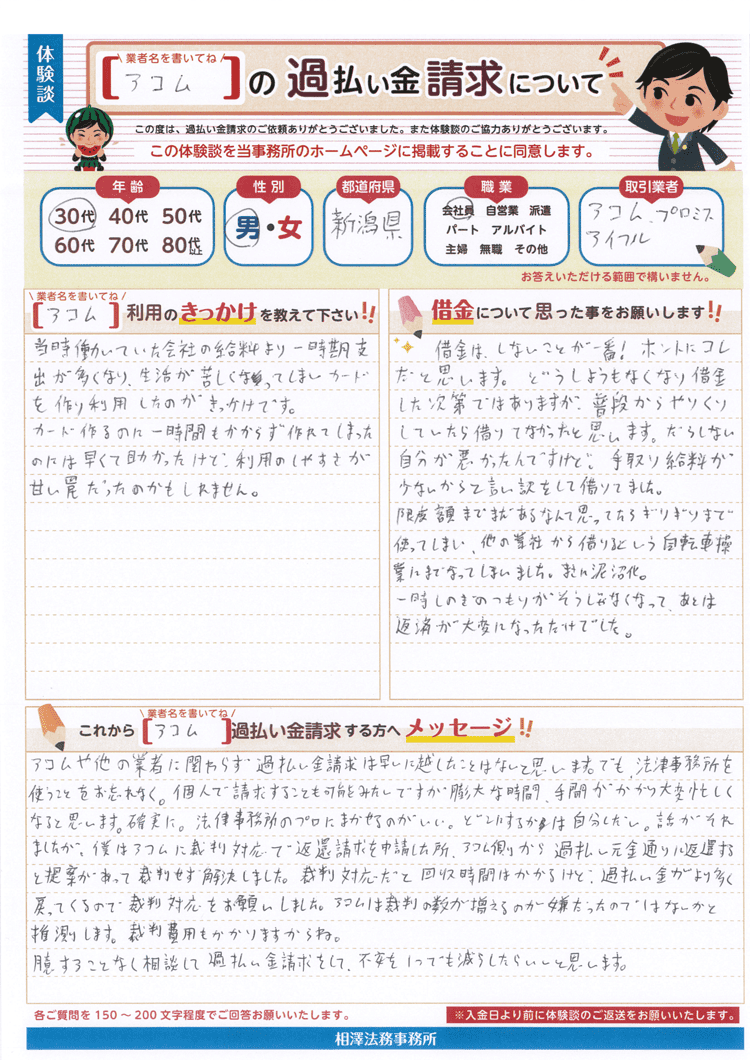 体験談
業者名を書いてね
[アコム]の過払い金請求について
この度は、過払い金請求のご依頼ありがとうございました。また体験談のご協力ありがとうございます。
この体験談を当事務所のホームページに掲載することに同意します。
年齢
30代 40代 50代
60代 70代 80代以上
性別
男・女
都道府県
新潟県
職業
会社員 自営業 派遣
パート アルバイト
主婦 無職 その他
取引業者
アコム、プロミス
アイフル
お答えいただける範囲で構いません。
業者名を書いてね
[アコム]利用のきっかけを教えて下さい!!
当時働いていた会社の給料より一時期支
出が多くなり、生活が苦しくなってしまいカード
を作り利用したのがきっかけです。
カード作るのに一時間もかからず作れてしまった
のには早くて助かったけど、利用のしやすさが
甘い罠だったのかもしれません。
借金について思った事をお願いします!!
借金は、しないことが一番!ホントにコレ
だと思います。どうしようもなくなり借金
した次第ではありますが、普段からやりくり
していたら借りてなかったと思います。だらしない
自分が悪かったんですけど、手取り給料が
少ないからと言い訳をして借りてました。
限度額までまだあるなんて思ってたらギリギリまで
使ってしまい、他の業社から借りるという自転車操
業にまでなってしまいました。まさに泥沼化。
一時しのぎのつもりがそうじゃなくなって、あとは
返済が大変になっただけでした。
業者名を書いてね
これから[アコム]過払い金請求する方へメッセージ!!
アコムや他の業者に関わらず過払い金請求は早いに越したことはないと思います。でも、法律事務所を
使うことをお忘れなく。個人で請求することも可能みたいですが膨大な時間、手間がかかり大変忙しく
なると思います。確実に。法律事務所のプロにまかせるのがいい。どこにするかは自分しだい。話がそれ
ましたが、僕はアコムに裁判対応で返還請求を申請した所、アコム側から過払い元金通りに返還する
と提案があって裁判せず解決しました。裁判対応だと回収時間はかかるけど、過払い金がより多く
戻ってくるので裁判対応をお願いしました。アコムは裁判の数が増えるのが嫌だったのではないかと
推測します。裁判費用もかかりますからね。
臆することなく相談して過払い金請求をして、不安を1つでも減らしたらいいと思います。
各ご質問を150〜200文字程度でご回答お願いいたします。
※入金日より前に体験談のご返送をお願いいたします。
相澤法務事務所